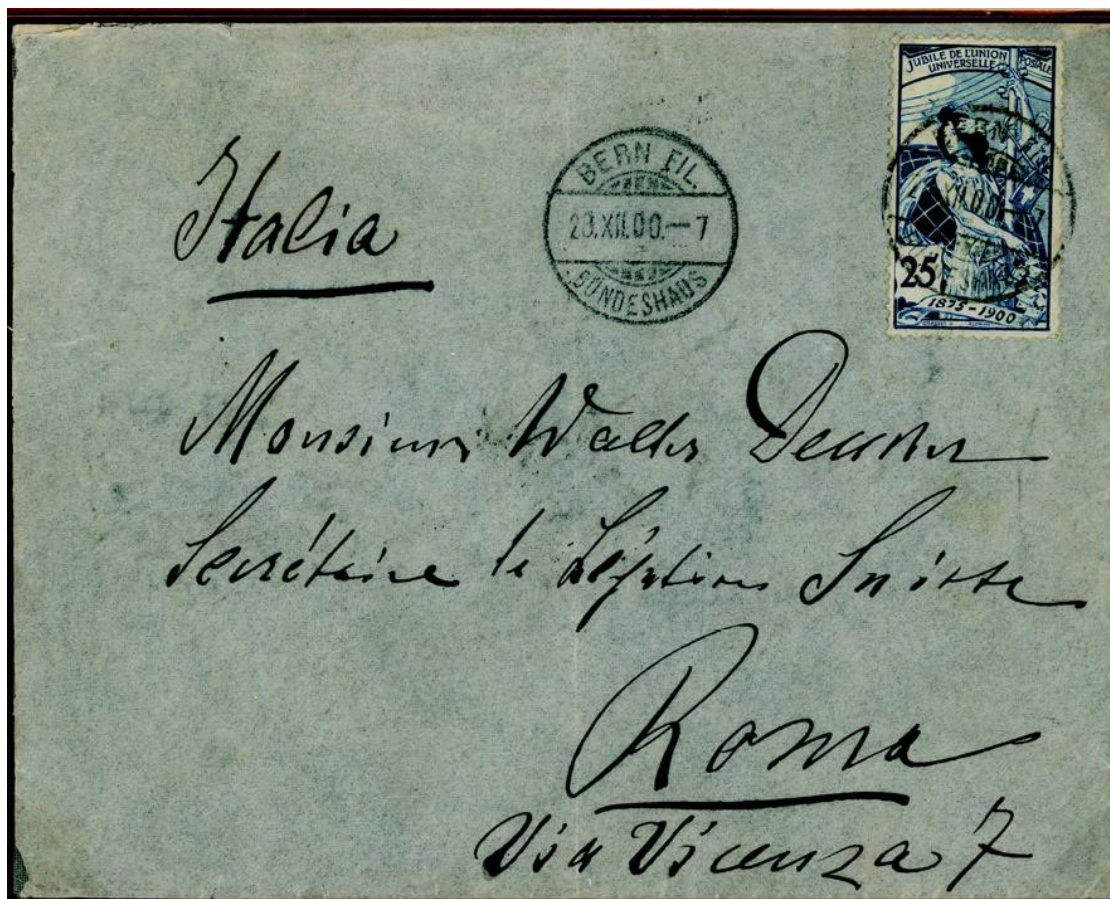 JUBILE DE L'UNION POSTALE
UNIVERSELLE
25
1875-1900
BERN FIL.
XII.00.-7
BUNDESHAUS
Italia
Monsieur Walter Deucher
Secrétaire de Légation Suisse
Roma
Via Vicenza 7